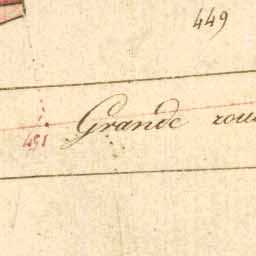 449
Grande rou
451